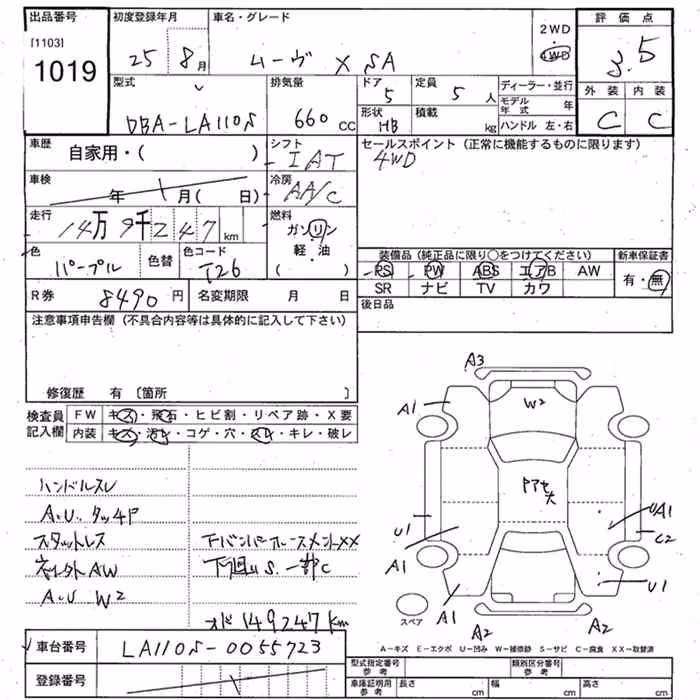 出品番号 初度登録年月 車名・グレード 2WD 評価点
[1103] 25 8月 ムーヴ X SA 4WD 3.5
1019 外装 内装
型式 排気量 ドア 定員 ディーラー・並行 C C
DBA-LA110S 660cc 5 5人 モデル年式 年
形状 積載 ハンドル 左・右
HB kg
車歴 自家用・( ) シフト IAT セールスポイント(正常に機能するものに限ります)
4WD
車検 年 月( 日) 冷房 AA/C
走行 14万9千247km 燃料 ガソリン
軽・油
( ・ )
色 パープル 色替 色コード T26 装備品(純正品に限り○をつけてください) 新車保証書
PS PW ABS エアB AW 有・無
R券 8490円 名変期限 月 日 SR ナビ TV カワ
注意事項申告欄(不具合内容等は具体的に記入して下さい) 後日品
修復歴 有 [箇所 ]
検査員 FW キズ・飛石・ヒビ割・リペア跡・X要
記入欄 内装 キズ・汚れ・コゲ・穴・スレ・キレ・破レ
A3
A1 W2
ハンドルスレ
A.U. タッチP
スタットレス 下バンパー
下廻りS.一部C
社外AW
A.U. W2
オド149247km
Pアセ大
U1 UA1
C2
A1 U1
A1 A2 A2
スペア
A-キズ E-エクボ U-凹み W-補修跡 S-サビ C-腐食 XX-取替済
車台番号 LA110S-0055723
登録番号
型式指定番号 参考 類別区分番号 参考
車庫証明用 参考 長さ cm 幅 cm 高さ cm